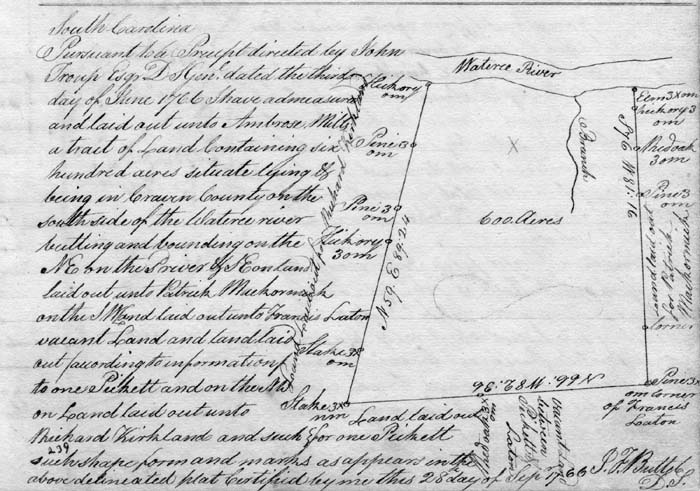 South Carolina
Pursuant to a Precept directed by John
Troup Esqr. D. Genl. dated the third
day of June 1766 I have admeasured
and laid out unto Ambrose Mills
a tract of Land Containing six
hundred acres situate lying &
being in Craven County on the
south side of the Wateree river
butting and bounding on the
NE on the sd river & SE on Land
laid out unto Patrick Mackormick
on the SW land laid out unto Francis Laton
vacant Land and land laid
out (according to information)
to one Pickett and on the NW
on Land laid out unto
Richard Kirkland and such for one Pickett
239
such shape form and marks as appears in the
above delineated plat Certified by me this 28 day of Sepr. 1766
D. S.
Wateree River
Branch
X
600 Acres
Hickory
om
Pine 3
om
Pine 3
om
Hickory
3om
Stake 3x
om
Stake 3x
nm
N 59. E 89.24
Land laid out to Richard Kirkland
Elm 3x om
Hickory 3
om
3om
Pine 3
om
Land laid out
for Patrick
Mackormick
Corner
Pine 3x
om Corner
of Francis
Laton
Land laid out
Vacant Land
between
Picket &
Laton